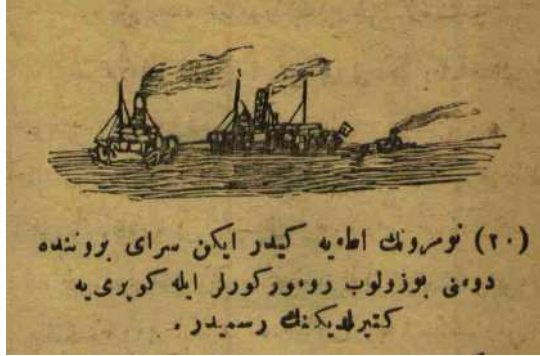 (۲۰) نومرونك اطه‌یه کیدر ایکن سرای بروننده
دومنی بوزولوب رومورکورلر ایله کوپری یه
کتیرلدیکنك رسمیدر .